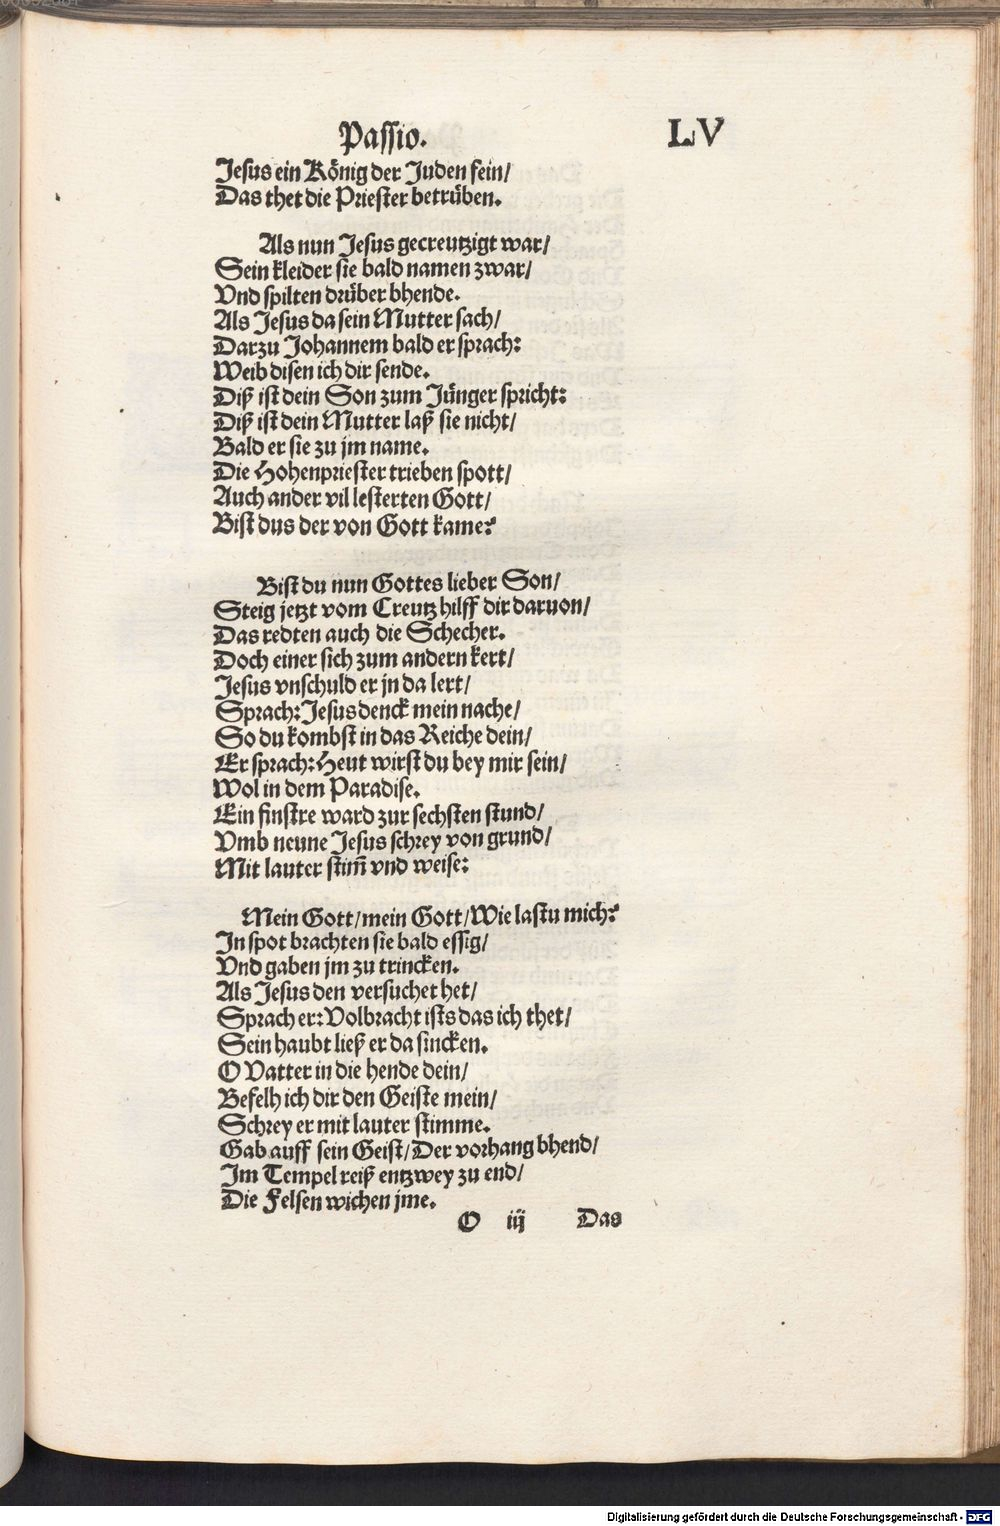 Passio. LV
Jesus ein König der Juden fein/
Das thet die Priester betrüben.
Als nun Jesus gecreutzigt war/
Sein kleider sie bald namen zwar/
Vnd spilten drüber bhende.
Als Jesus da sein Mutter sach/
Darzu Johannem bald er sprach:
Weib disen ich dir sende.
Diß ist dein Son zum Jünger spricht:
Diß ist dein Mutter laß sie nicht/
Bald er sie zu jm name.
Die Hohenpriester trieben spott/
Auch ander vil lesterten Gott/
Bist dus der von Gott kame?
Bist du nun Gottes lieber Son/
Steig jetzt vom Creutz hilff dir daruon/
Das redten auch die Schecher.
Doch einer sich zum andern kert/
Jesus vnschuld er jn da lert/
Sprach: Jesus denck mein nache/
So du kombst in das Reiche dein/
Er sprach: Heut wirst du bey mir sein/
Wol in dem Paradise.
Ein finstre ward zur sechsten stund/
Vmb neune Jesus schrey von grund/
Mit lauter stim̄ vnd weise:
Mein Gott/mein Gott/Wie lastu mich?
In spot brachten sie bald essig/
Vnd gaben jm zu trincken.
Als Jesus den versuchet het/
Sprach er: Volbracht ists das ich thet/
Sein haubt ließ er da sincken.
O Vatter in die hende dein/
Befelh ich dir den Geiste mein/
Schrey er mit lauter stimme.
Gab auff sein Geist/Der vorhang bhend/
Im Tempel reiß entzwey zu end/
Die Felsen wichen jme.
O iij Das
Digitalisierung gefördert durch die Deutsche Forschungsgemeinschaft - DFG